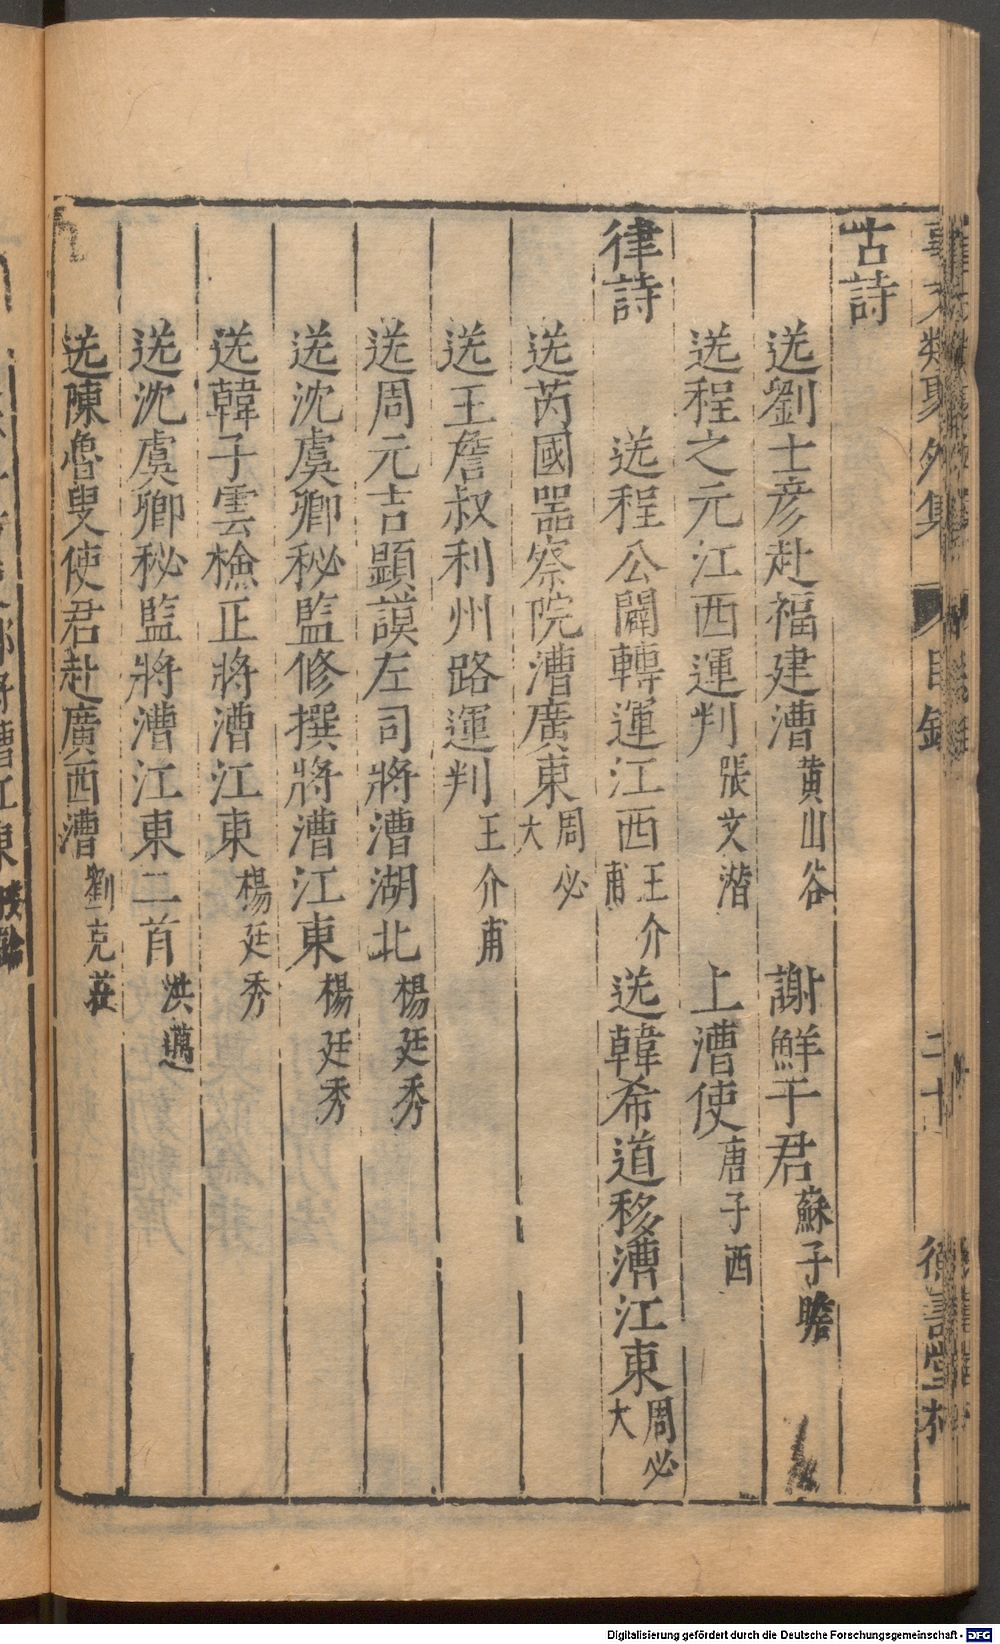 古詩
送劉士彦赴福建漕黄山谷 謝鮮于君蘇子瞻
送程之元江西運判張文潛 上漕使唐子西
律詩 送程公闢轉運江西王介甫 送韓希道移漕江東周必大
送芮國器察院漕廣東周必大
送王詹叔利州路運判王介甫
送周元吉顕謨左司將漕湖北楊廷秀
送沈虞卿秘監修撰將漕江東楊廷秀
送韓子雲檢正將漕江東楊廷秀
送沈虞卿秘監將漕江東二首洪邁
送陳魯叟使君赴廣西漕劉克莊
Digitalisierung gefördert durch die Deutsche Forschungsgemeinschaft - DFG